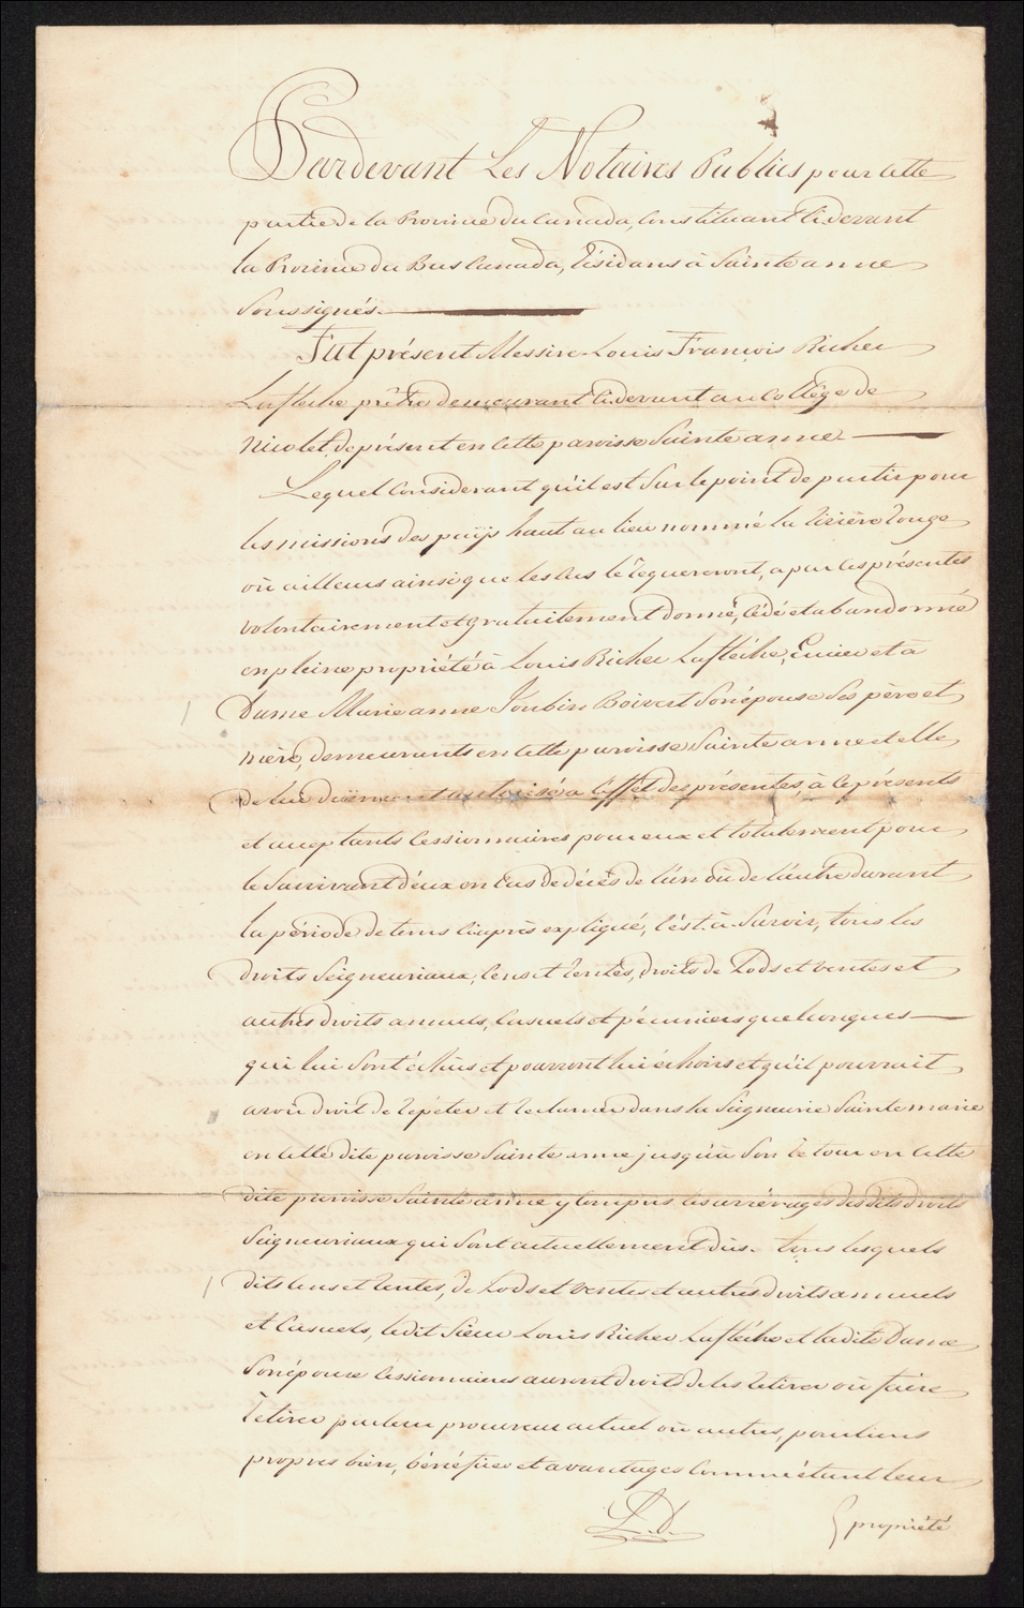 Pardevant Les Notaires Publics pour cette
partie de la Province du Canada, Constituant Cidevant
la Province du Bas Canada, Résidans à Sainte anne
Soussignés.
Fut présent Messire Louis François Richer
Laflèche prêtre demeurant Cidevant au Collége de
Nicolet, de présent en Cette paroisse Sainte anne
Lequel Considerant qu'il est Sur le point de partir pour
les missions des païjs haut au lieu nommé la rivière rouge
où ailleurs ainsi que les Cas le requereront, a par Ces présentes
volontairement et gratuitement donné, Cédé et abandonné
en pleine propriété à Louis Richer Laflèche, Ecuier et à
Dame Marie anne Joubin Boivert Son épouse Ses père et
mère, demeurants en Cette paroisse Sainte anne et elle
de lui duëment autorisée a l'effet des présentes, à Ce présents
et acceptants Cessionnaires pour eux et totalement pour
le Survivant d'eux en Cas de décès de l'un où de l'autre durant
la période de tems Ciaprès expliqué, C'est-à-Savoir, tous les
droits Seigneuriaux, Cens et rentes, droits de Lods et ventes et
autres droits annuels, Casuels et pécuniers quelconques
qui lui Sont échus et pourront lui échoirs et qu'il pourrait
avoir droit de répéter et réclamer dans la Seigneurie Sainte marie
en Cette dite paroisse Sainte anne jusqu'à Son retour en Cette
dite paroisse Sainte anne y Compris les arrérages des dits droits
Seigneuriaux qui Sont actuellement dûs. tous lesquels
dits Cens et rentes, de Lods et ventes et autres droits annuels
et Casuels, ledit Sieur Louis Richer Laflèche et ladite Dame
Son épouse Cessionnaires auront droit de les retirer où faire
retirer par leur procureur actuel où autres, pour leurs
propres bien, bénéfice et avantages Comme étant leur
L. D.
propriété